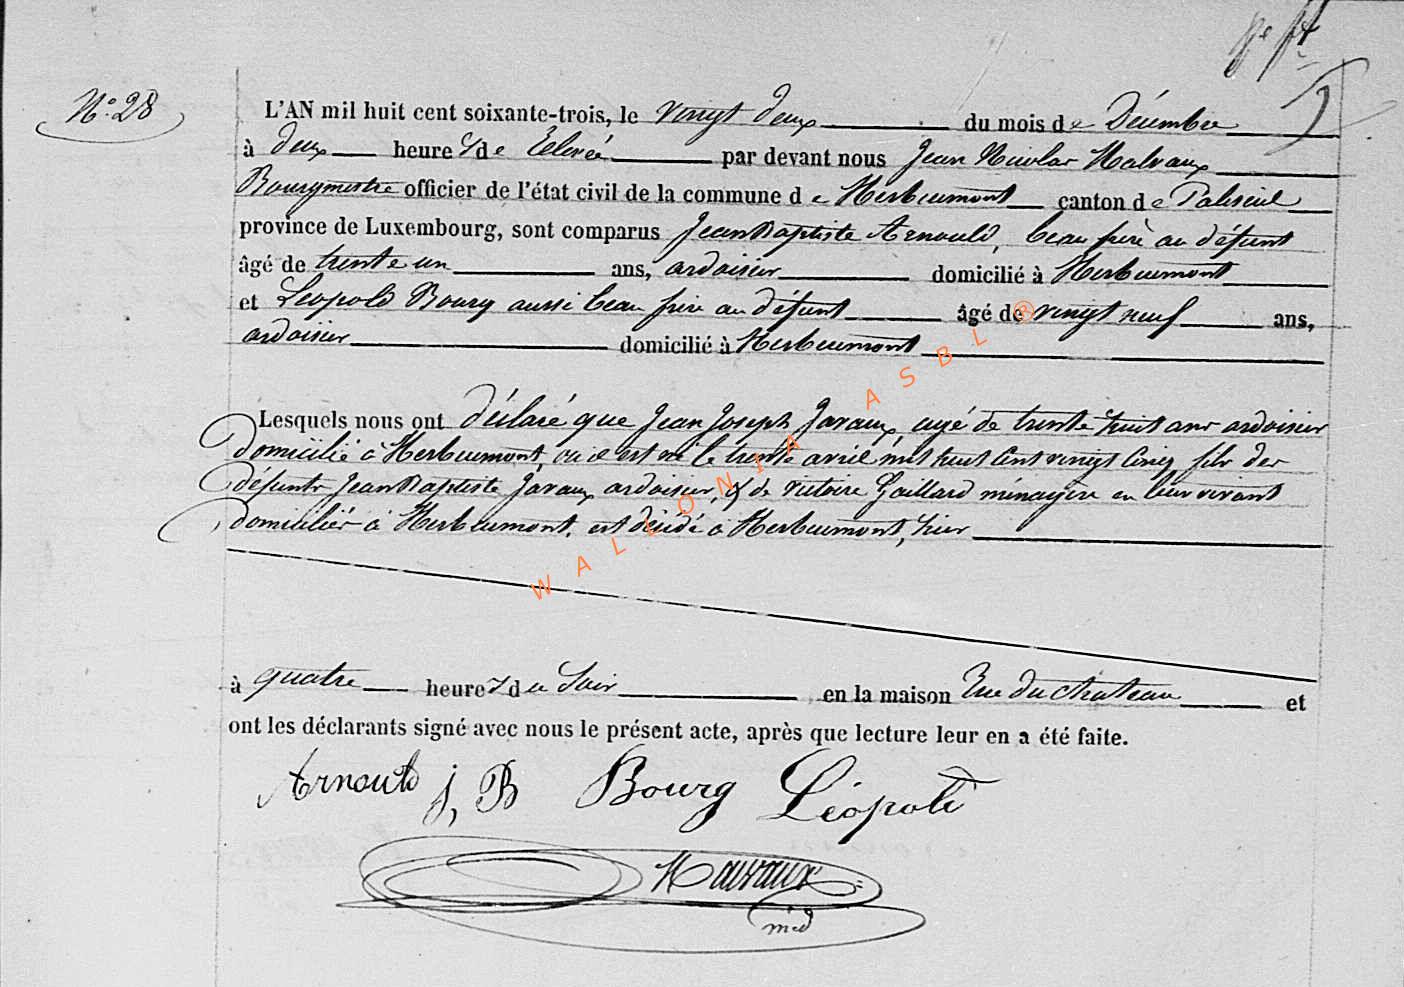 N° 28
L'AN mil huit cent soixante-trois, le vingt deux du mois de Décembre
à deux heures de Relevée par devant nous Jean Nicolas Malvaux
Bourgmestre officier de l'état civil de la commune de Herbeumont canton de Paliseul
province de Luxembourg, sont comparus Jean Baptiste Arnould, beau frère au défunt
âgé de trente un ans, ardoisier domicilié à Herbeumont
et Léopold Bourg aussi beau frère au défunt âgé de vingt neuf ans,
ardoisier domicilié à Herbeumont
Lesquels nous ont déclaré que Jean Joseph Javaux agé de trente huit ans ardoisier
domicilié à Herbeumont, où il est né le trente avril mil huit cent vingt cinq fils des
défunts Jean Baptiste Javaux ardoisier, & de Victoire Gaillard ménagère en leur vivant
domiciliés à Herbeumont, est décédé à Herbeumont, hier
à quatre heures du Soir en la maison Rue du chateau et
ont les déclarants signé avec nous le présent acte, après que lecture leur en a été faite.
Arnould j, B Bourg Léopold
Malvaux
WALLONIA ASBL ®